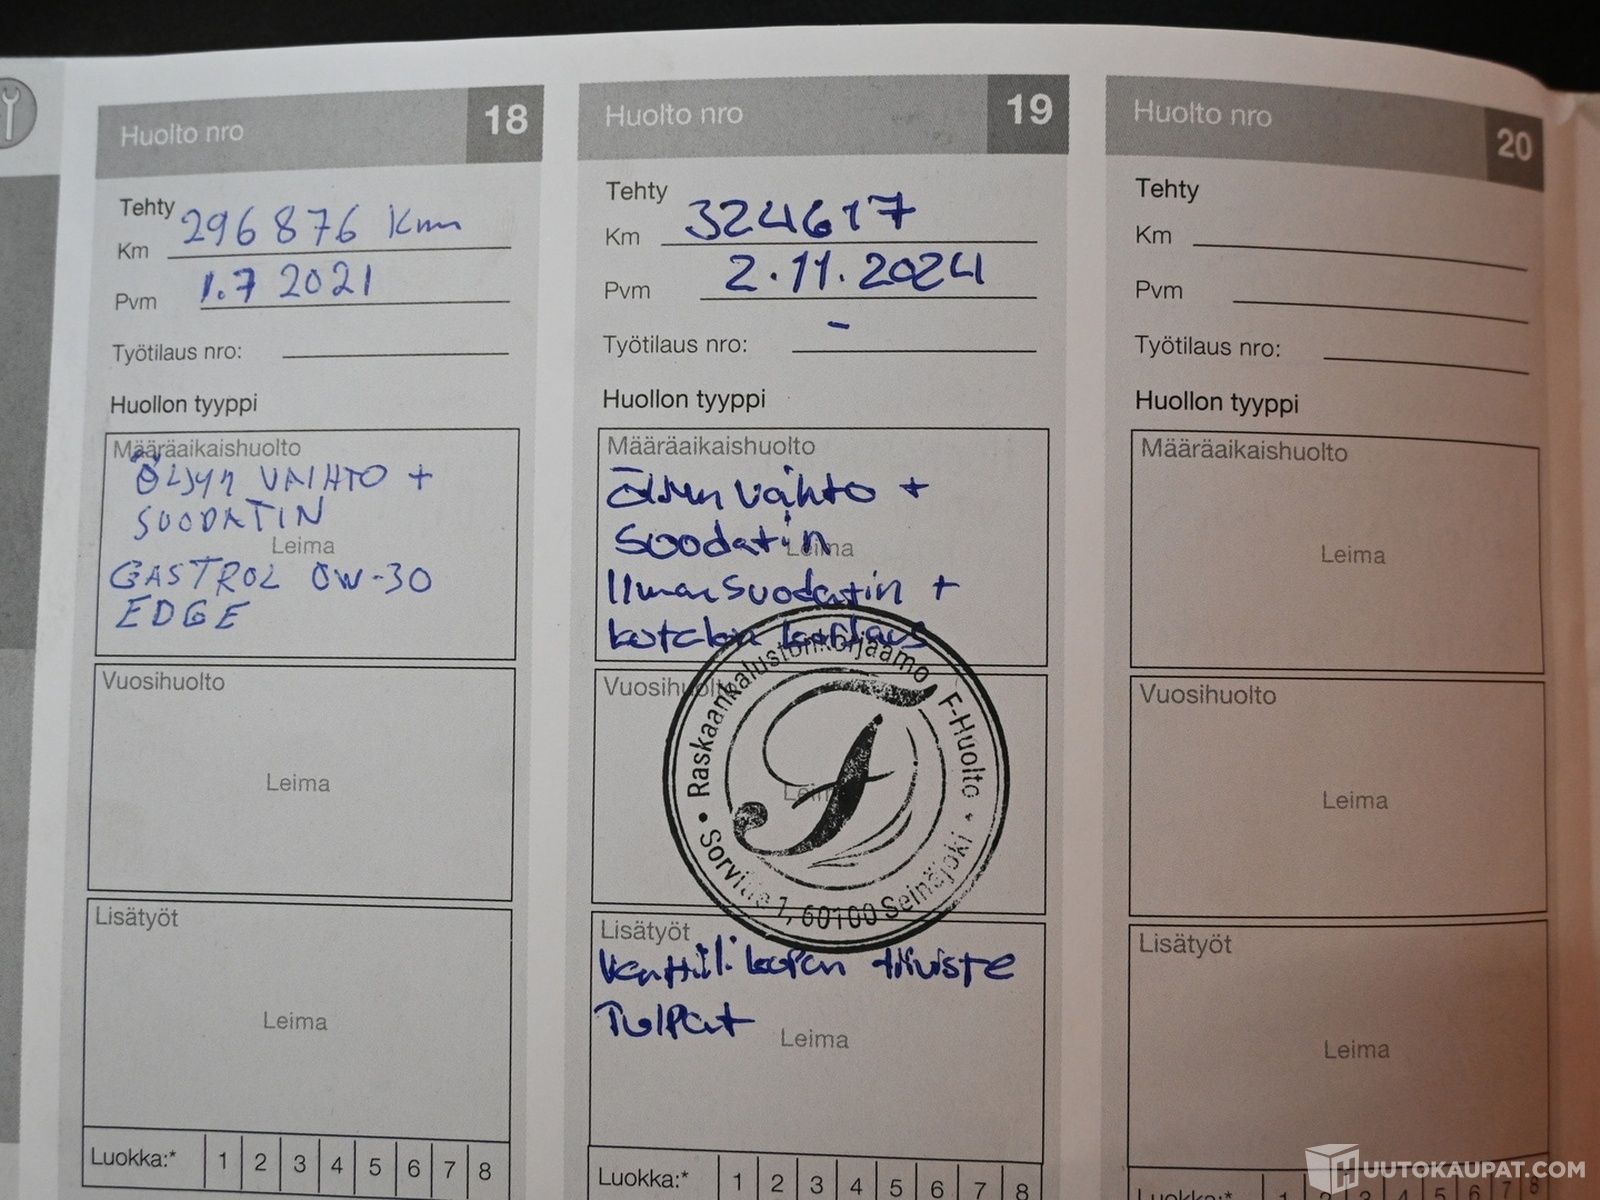 Huolto nro 18
Tehty
Km 296 876 Km
Pvm 1.7 2021
Työtilaus nro:
Huollon tyyppi
Määräaikaishuolto
ÖLJYN VAIHTO +
SUODATIN
Leima
CASTROL 0W-30
EDGE
Vuosihuolto
Leima
Lisätyöt
Leima
Luokka:* 1 2 3 4 5 6 7 8
Huolto nro 19
Tehty
Km 324617
Pvm 2.11.2024
Työtilaus nro: -
Huollon tyyppi
Määräaikaishuolto
Öljyn vaihto +
Suodatin
Leima
Ilmansuodatin +
kotelon
Vuosihuolto
Leima
Raskaankalustonkorjaamo F-Huolto
• Sorvitie 1, 60100 Seinäjoki •
Lisätyöt
Venttiili kopan tiiviste
Tulpat
Leima
Luokka:* 1 2 3 4 5 6 7 8
Huolto nro 20
Tehty
Km
Pvm
Työtilaus nro:
Huollon tyyppi
Määräaikaishuolto
Leima
Vuosihuolto
Leima
Lisätyöt
Leima
Luokka:* 1 2 3 4 5 6 7 8
HUUTOKAUPAT.COM